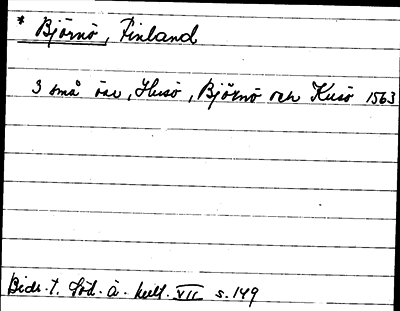 * Björnö, Finland
3 små öar, Husö, Björnö och Kusö 1563
Bidr. t. Söd. Å. kult. VII s. 149